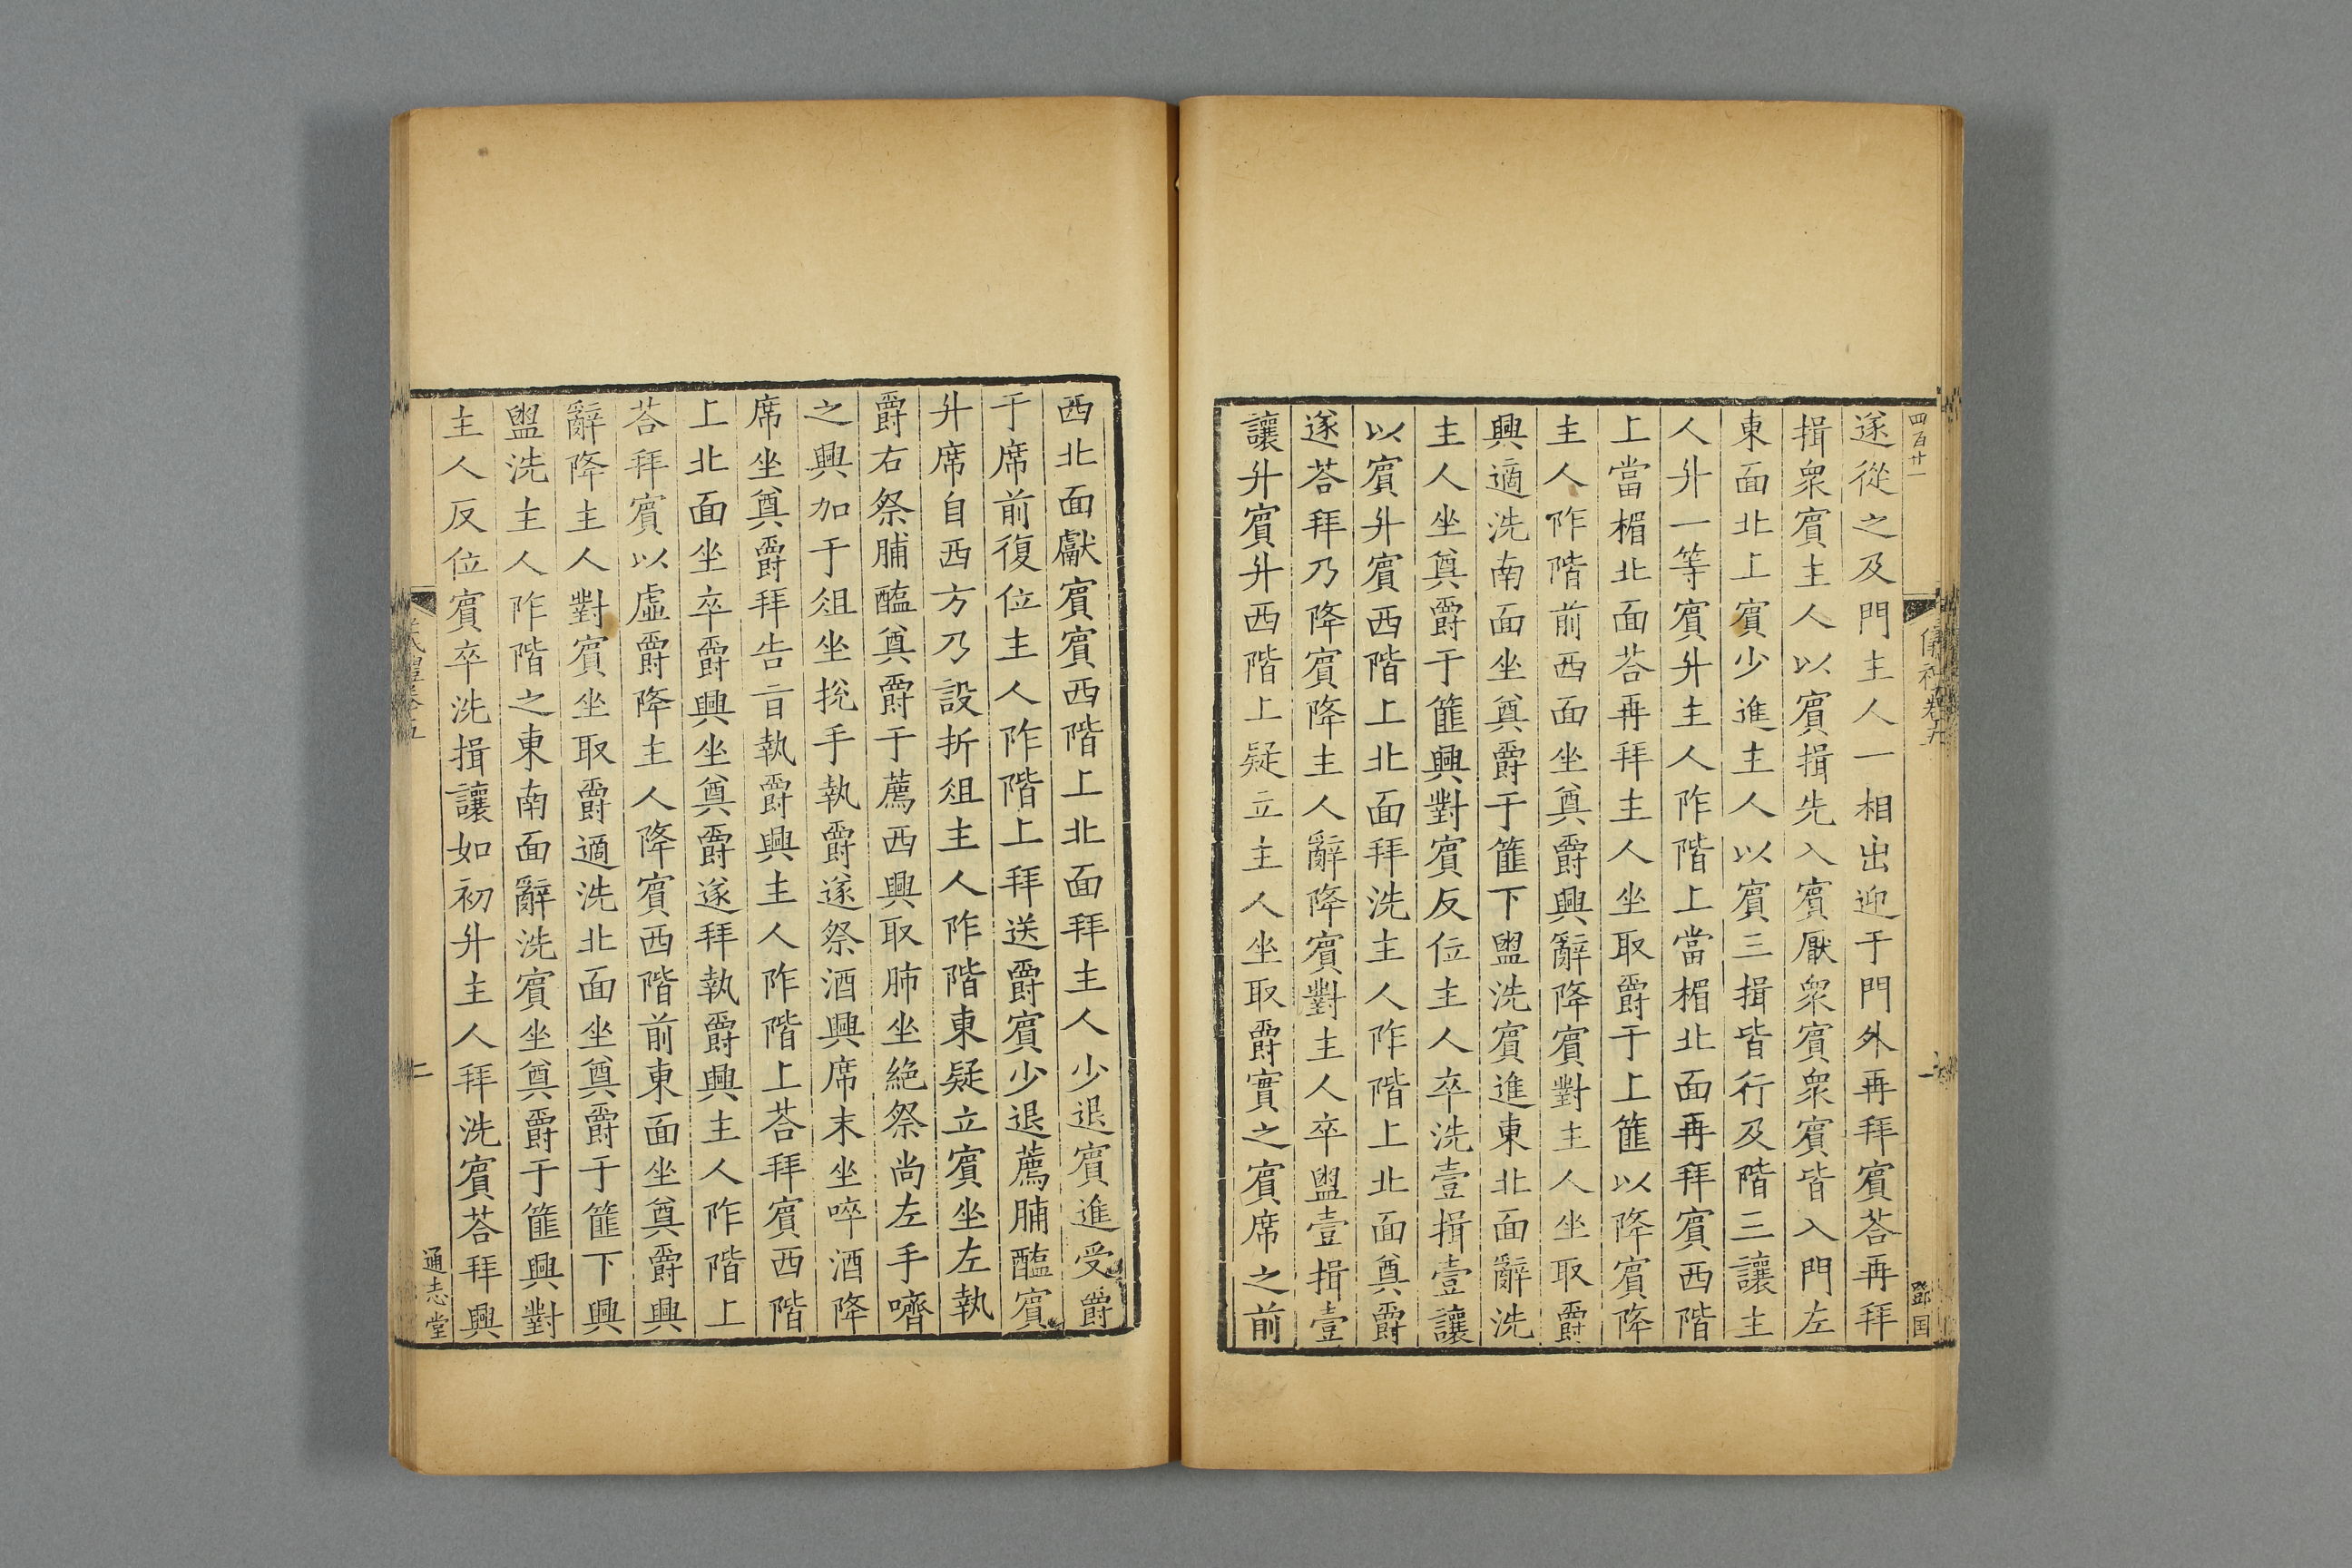 四百廿一
遂從之及門主人一相出迎于門外再拜賓荅再拜
揖衆賓主人以賓揖先入賓厭衆賓衆賓皆入門左
東面北上賓少進主人以賓三揖皆行及階三讓主
人升一等賓升主人阼階上當楣北面再拜賓西階
上當楣北面荅再拜主人坐取爵于上篚以降賓降
主人阼階前西面坐奠爵興辭降賓對主人坐取爵
興適洗南面坐奠爵于篚下盥洗賓進東北面辭洗
主人坐奠爵于篚興對賓反位主人卒洗壹揖壹讓
以賓升賓西階上北面拜洗主人阼階上北面奠爵
遂荅拜乃降賓降主人辭降賓對主人卒盥壹揖壹
讓升賓升西階上疑立主人坐取爵實之賓席之前
西北面獻賓賓西階上北面拜主人少退賓進受爵
于席前復位主人阼階上拜送爵賓少退薦脯醢賓
升席自西方乃設折俎主人阼階東疑立賓坐左執
爵右祭脯醢奠爵于薦西興取肺坐絶祭尚左手嚌
之興加于俎坐挩手執爵遂祭酒興席末坐啐酒降
席坐奠爵拜告旨執爵興主人阼階上荅拜賓西階
上北面坐卒爵興坐奠爵遂拜執爵興主人阼階上
荅拜賓以虛爵降主人降賓西階前東面坐奠爵興
辭降主人對賓坐取爵適洗北面坐奠爵于篚下興
盥洗主人阼階之東南面辭洗賓坐奠爵于篚興對
主人反位賓卒洗揖讓如初升主人拜洗賓荅拜興
二
通志堂